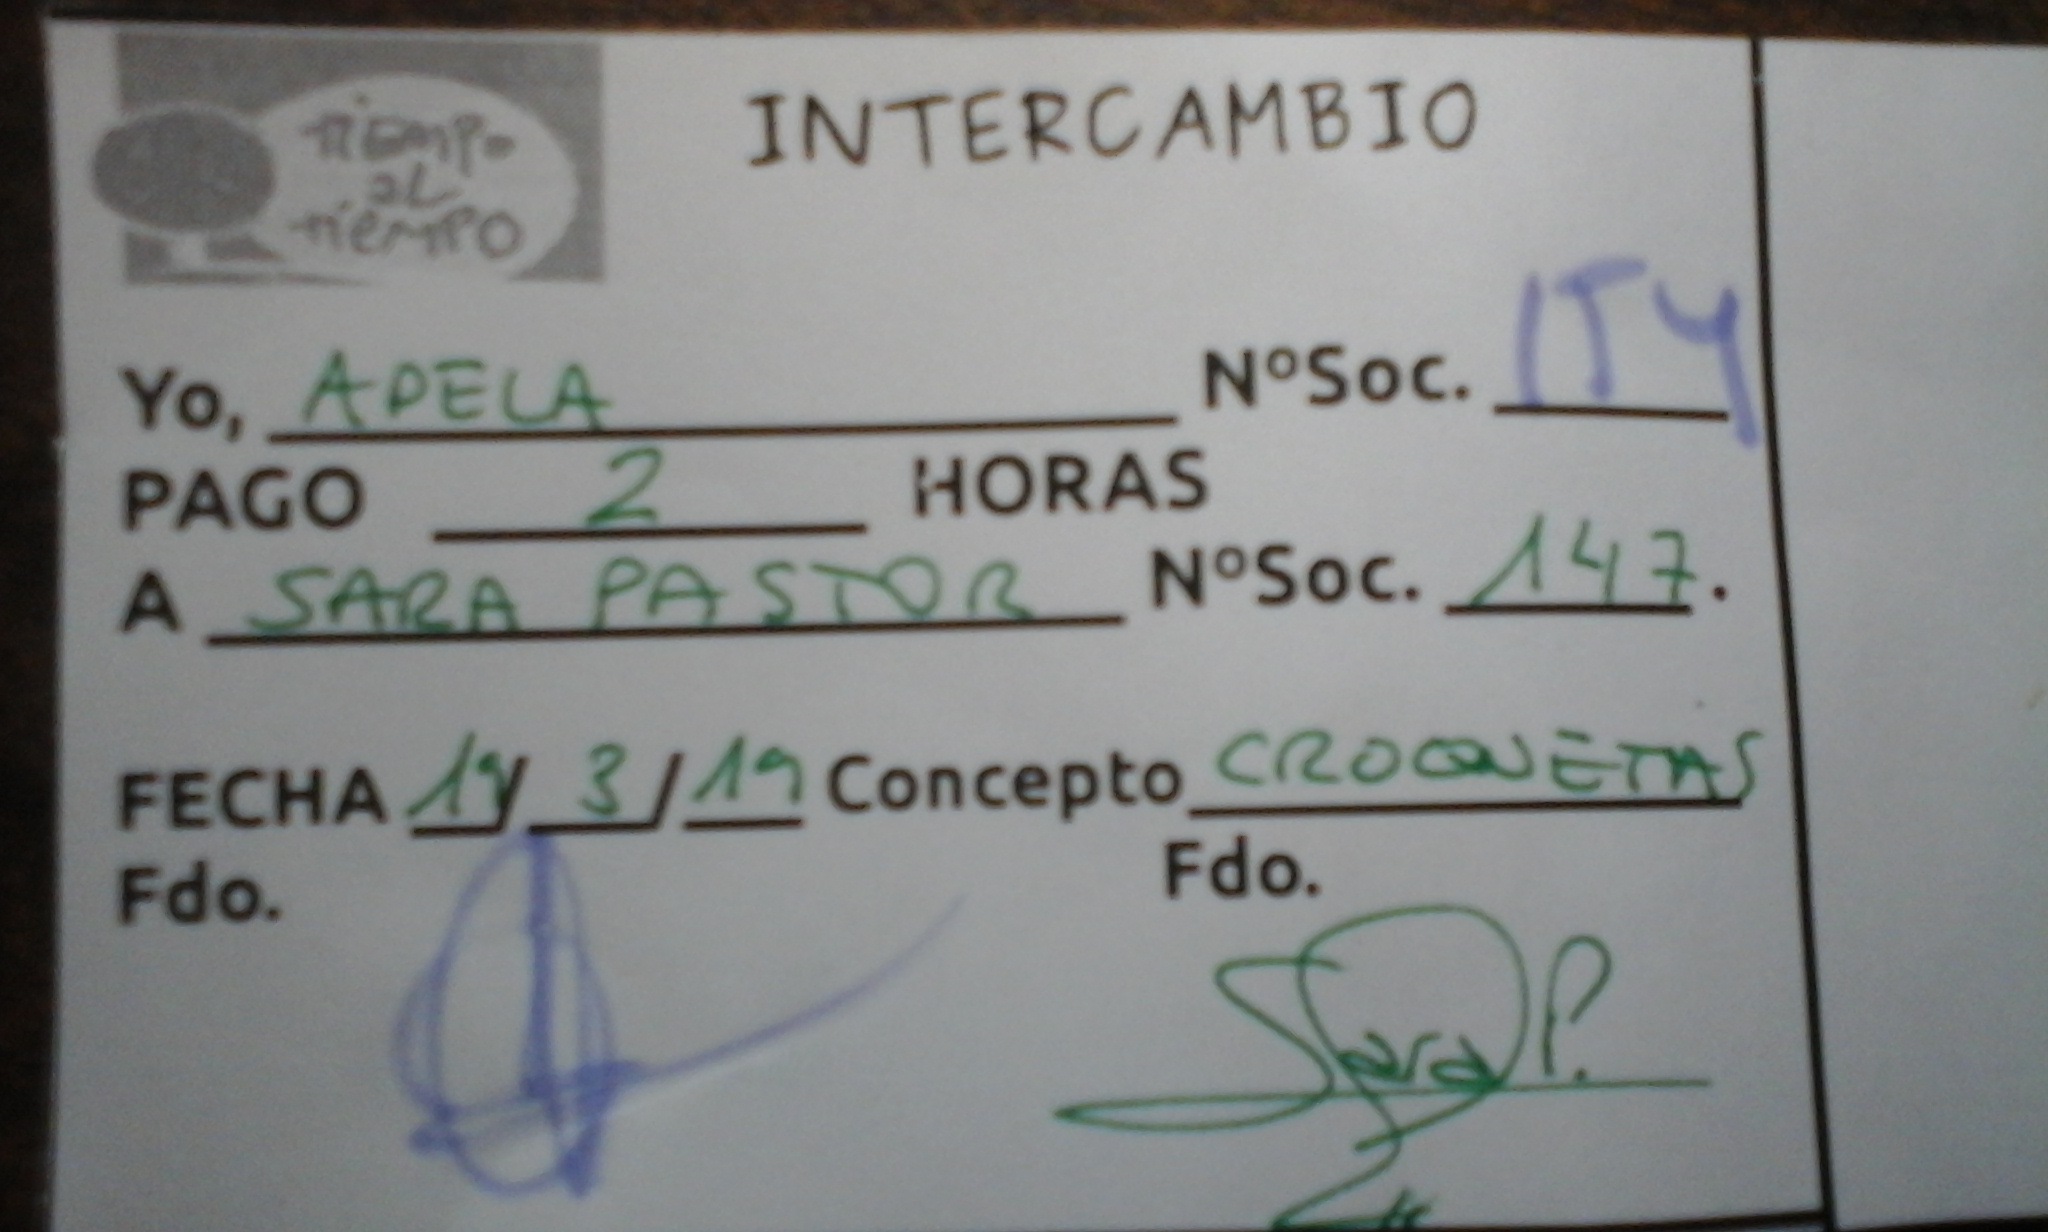 TIEMPO
AL
TIEMPO
INTERCAMBIO
Yo, ADELA NºSoc. 154
PAGO 2 HORAS
A SARA PASTOR NºSoc. 147.
FECHA 19/ 3 / 19 Concepto CROQUETAS
Fdo. Fdo.
Sara P.